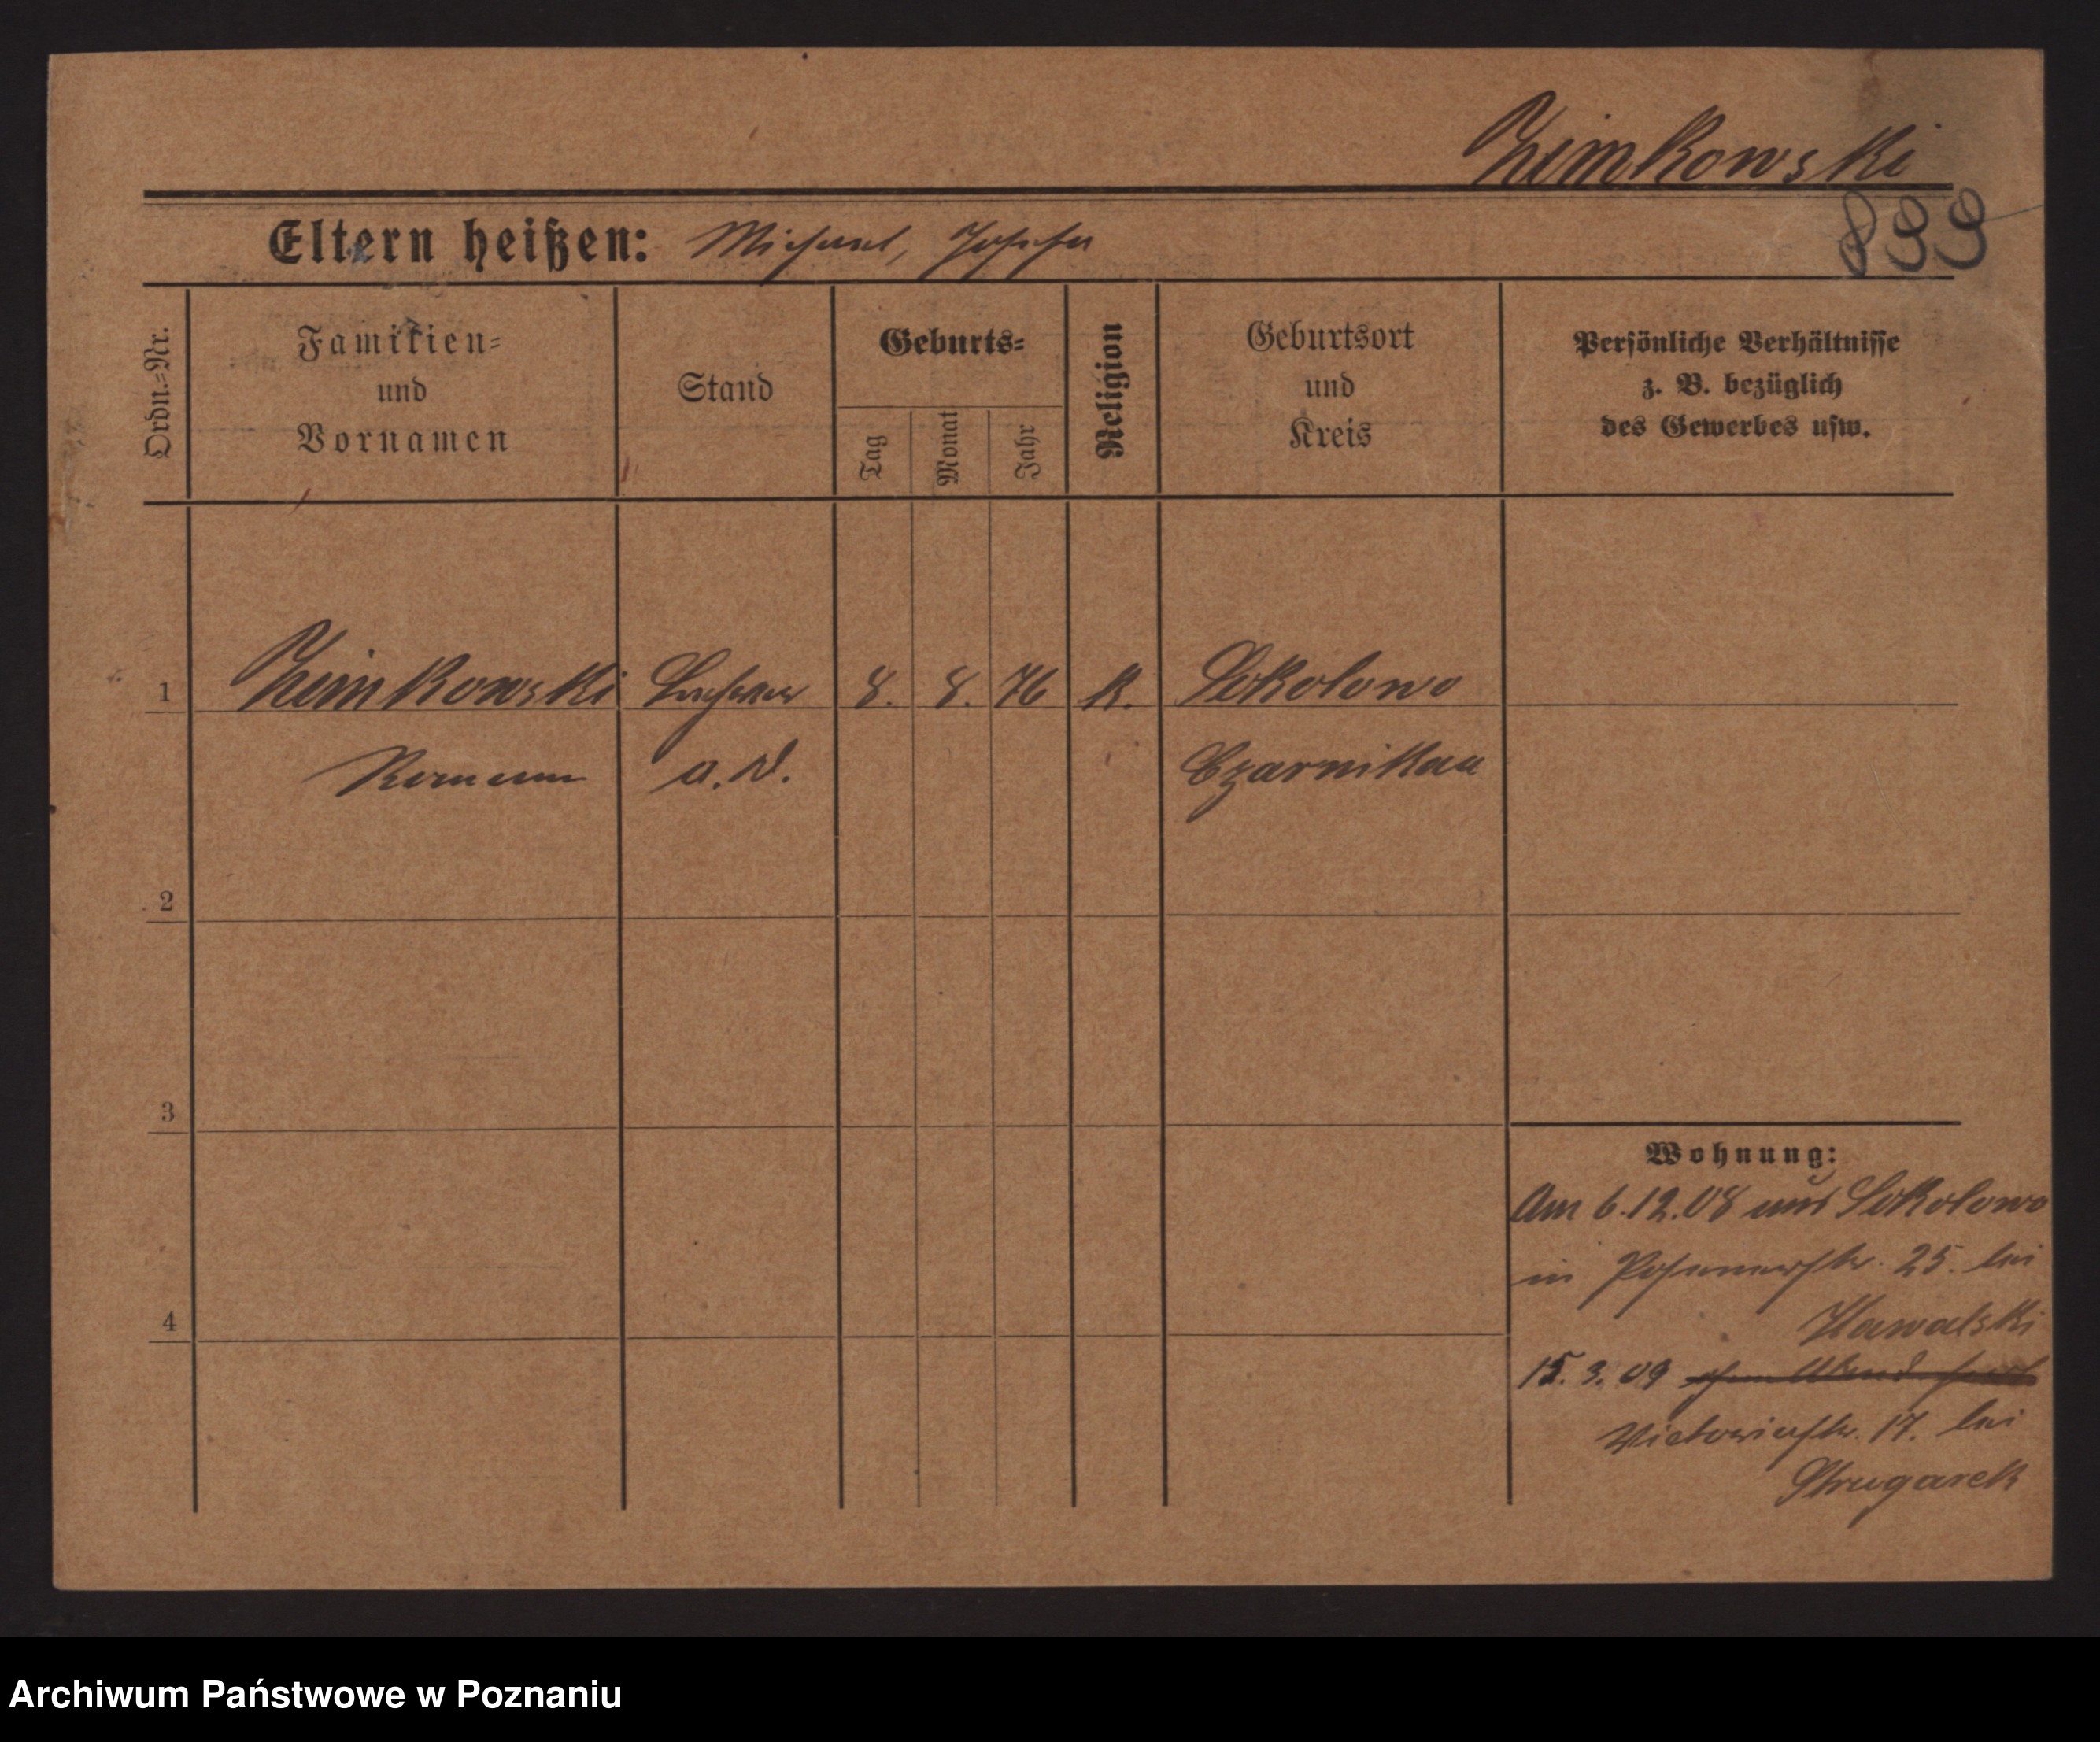 Zimkowski
Eltern heißen: Michael, Josefa
899
Ordn.=Nr.
Familien=
und
Vornamen
Stand
Geburts=
Tag
Monat
Jahr
Religion
Geburtsort
und
Kreis
Persönliche Verhältnisse
z. B. bezüglich
des Gewerbes usw.
1 Zimkowski 8. 8. 76 K. Sokolowo
Roman a. D. Czarnikau
2
3
4
Wohnung:
Am 6.12.08 aus Sokolowo
in Posenerstr. 25. bei
Kawalski
15. 3. 09
Victoriastr. 17. bei
Strugarek
Archiwum Państwowe w Poznaniu